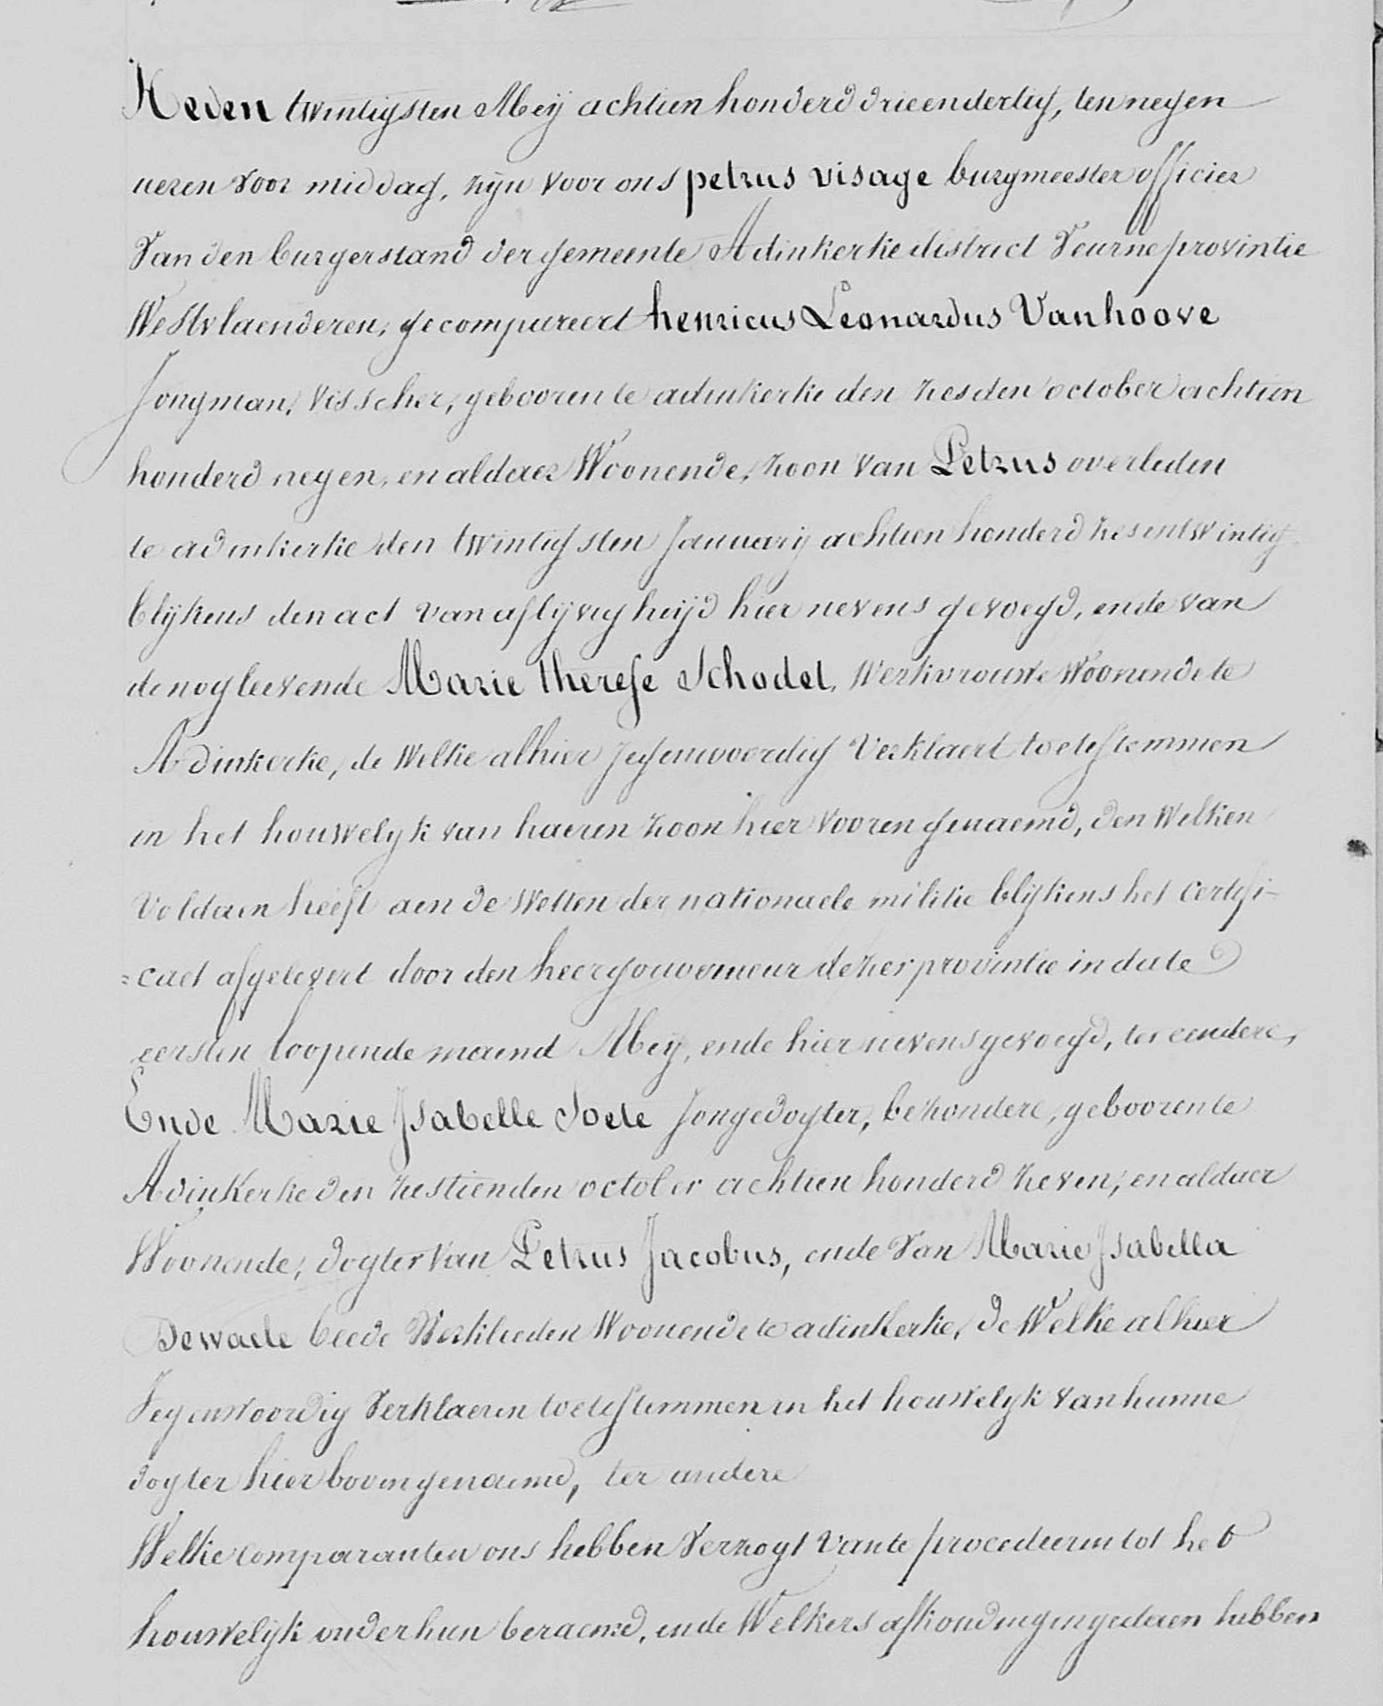 Heden twintigsten Meÿ achtien honderd drieendertig, ten negen
ueren voor middag, zijn voor ons petrus visage burgmeester officier
Van den burgerstand der gemeente Adinkerke district Veurne provintie
Westvlaenderen, gecompareerd henricus Leonardus Vanhoove
Jongman, visscher, gebooren te adinkerke den zesden october achtien
honderd negen, en aldaer Woonende, zoon van Petrus overleden
te adinkerke den twintigsten Januarij achtien honderd zesentwintig
blijkens den act van aflijvigheijd hier nevens gevoegd, ende van
de nog leevende Marie therese Schodet, Werkvrouwe Woonende te
Adinkerke, de Welke alhier jegenwoordig Verklaert toetestemmen
in het houwelyk van haeren zoon hier vooren genaemd, den Welken
Voldaen heeft aen de Wetten der nationaele militie blijkens het certifi-
=caet afgelevert door den heer gouverneur dezer provintie in date
eersten loopende maend Meÿ, ende hier nevens gevoegd, ter eendere,
Ende Marie Isabelle Soete Jongedogter, bezondere, gebooren te
Adinkerke den zestienden october achtien honderd zeven, en aldaer
Woonende, dogter van Petrus Jacobus, ende Van Marie Isabella
Dewaele beede Werklieden Woonende te adinkerke, de Welke alhier
Jegenwoordig Verklaeren toetestemmen in het houwelyk van hunne
dogter hier boven genaemd, ter andere
Welke comparanten ons hebben Verzogt van te procedeeren tot het
houwelijk onder hun beraemd, ende Welkers afkondingen gedaen hebben